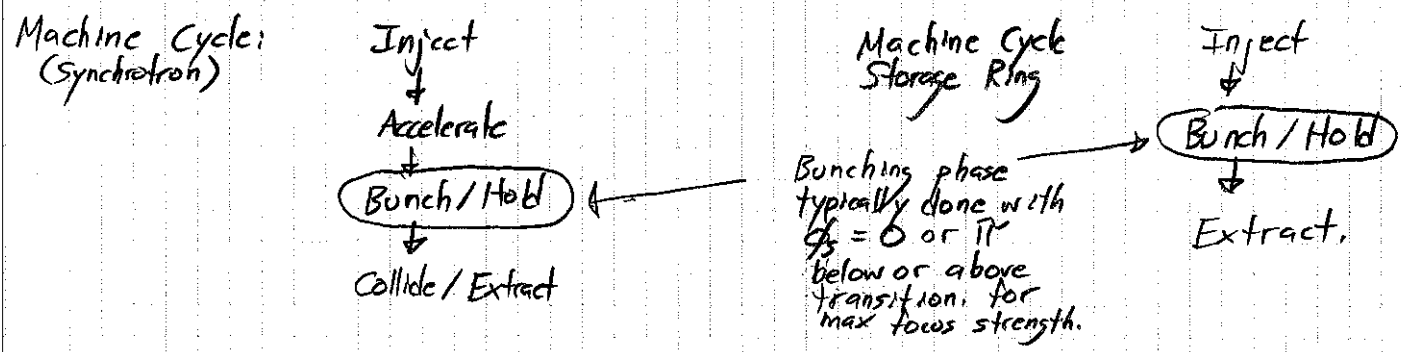 Machine Cycle:
(Synchrotron)
Inject
Accelerate
Bunch / Hold
Collide / Extract
Machine Cycle
Storage Ring
Bunching phase
typically done with
ϕs = 0 or π
below or above
transition. for
max focus strength.
Inject
Bunch / Hold
Extract.